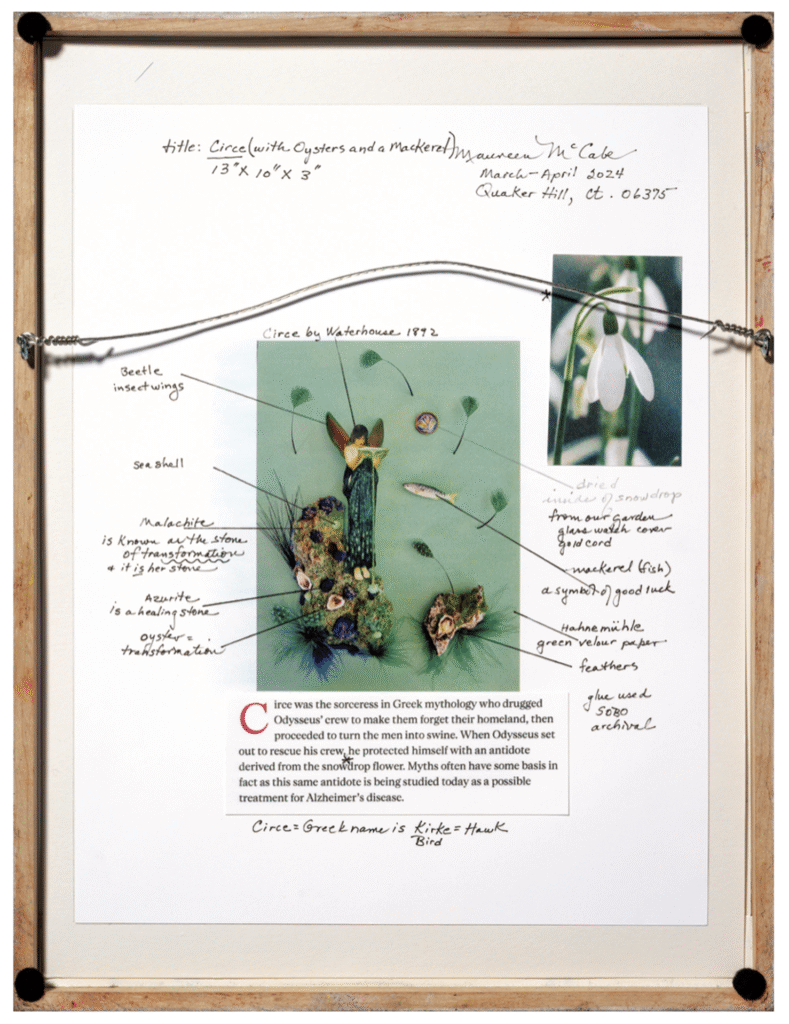 title: Circe (with Oysters and a Mackerel) Maureen McCabe
13" x 10" x 3"
March-April 2024
Quaker Hill, Ct. 06375
*
Circe by Waterhouse 1892
Beetle
insect wings
sea shell
Malachite
is known as the stone
of transformation
+ it is her stone
Azurite
is a healing stone
oyster =
transformation
dried
inside of snowdrop
from our garden
glass watch cover
gold cord
mackerel (fish)
a symbol of good luck
Hahnemühle
green velour paper
feathers
glue used
SOBO
archival
Circe was the sorceress in Greek mythology who drugged
Odysseus' crew to make them forget their homeland, then
proceeded to turn the men into swine. When Odysseus set
out to rescue his crew, he protected himself with an antidote
*
derived from the snowdrop flower. Myths often have some basis in
fact as this same antidote is being studied today as a possible
treatment for Alzheimer's disease.
Circe = Greek name is Kirke = Hawk
Bird